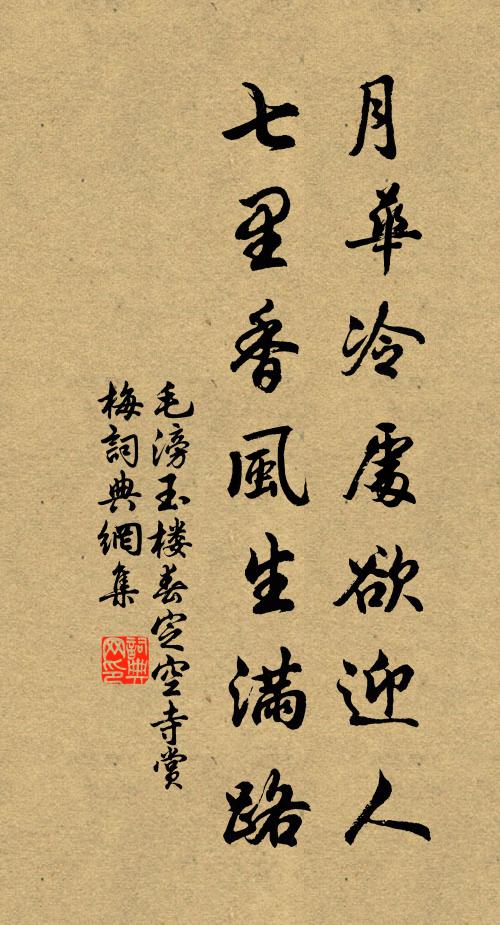 月華冷處欲迎人
七里香風生滿路
毛滂玉楼春定空寺赏
梅詞典網集
詞典网印